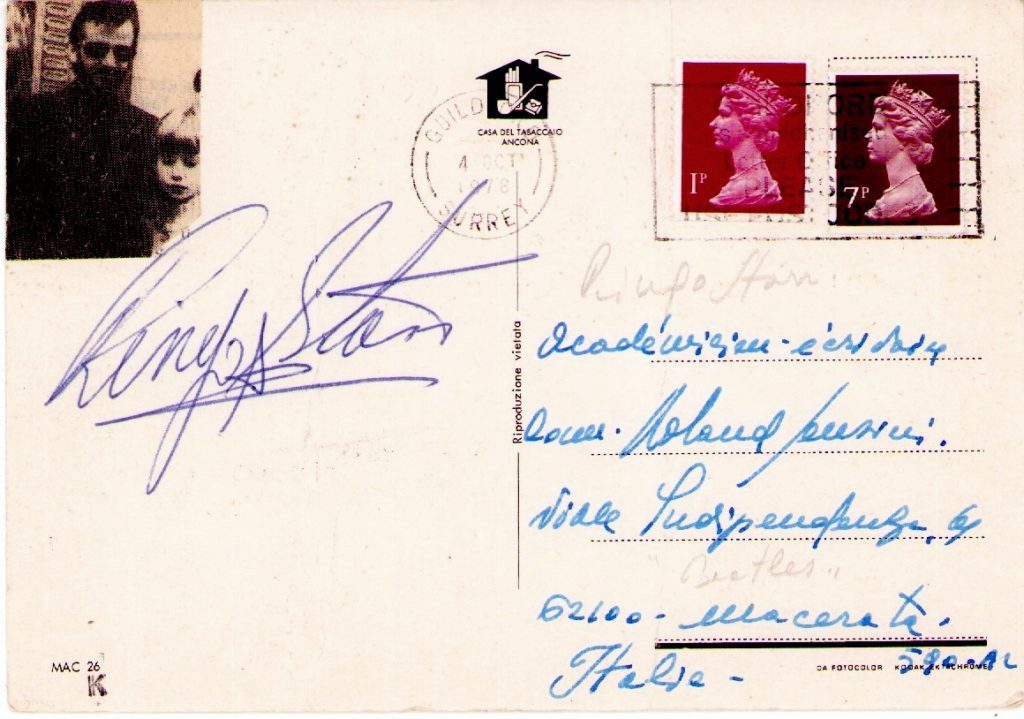 CASA DEL TABACCAIO
ANCONA
GUILDFORD
4 OCT
1978
SURREY
1P
7P
PLEASE
Ringo Starr
Ringo Starr.
Riproduzione vietata
Roland
Viale Indipendenza,
"Beatles"
62100 - Macerata.
Italia -
MAC 26
K
DA FOTOCOLOR KODAK EKTACHROME